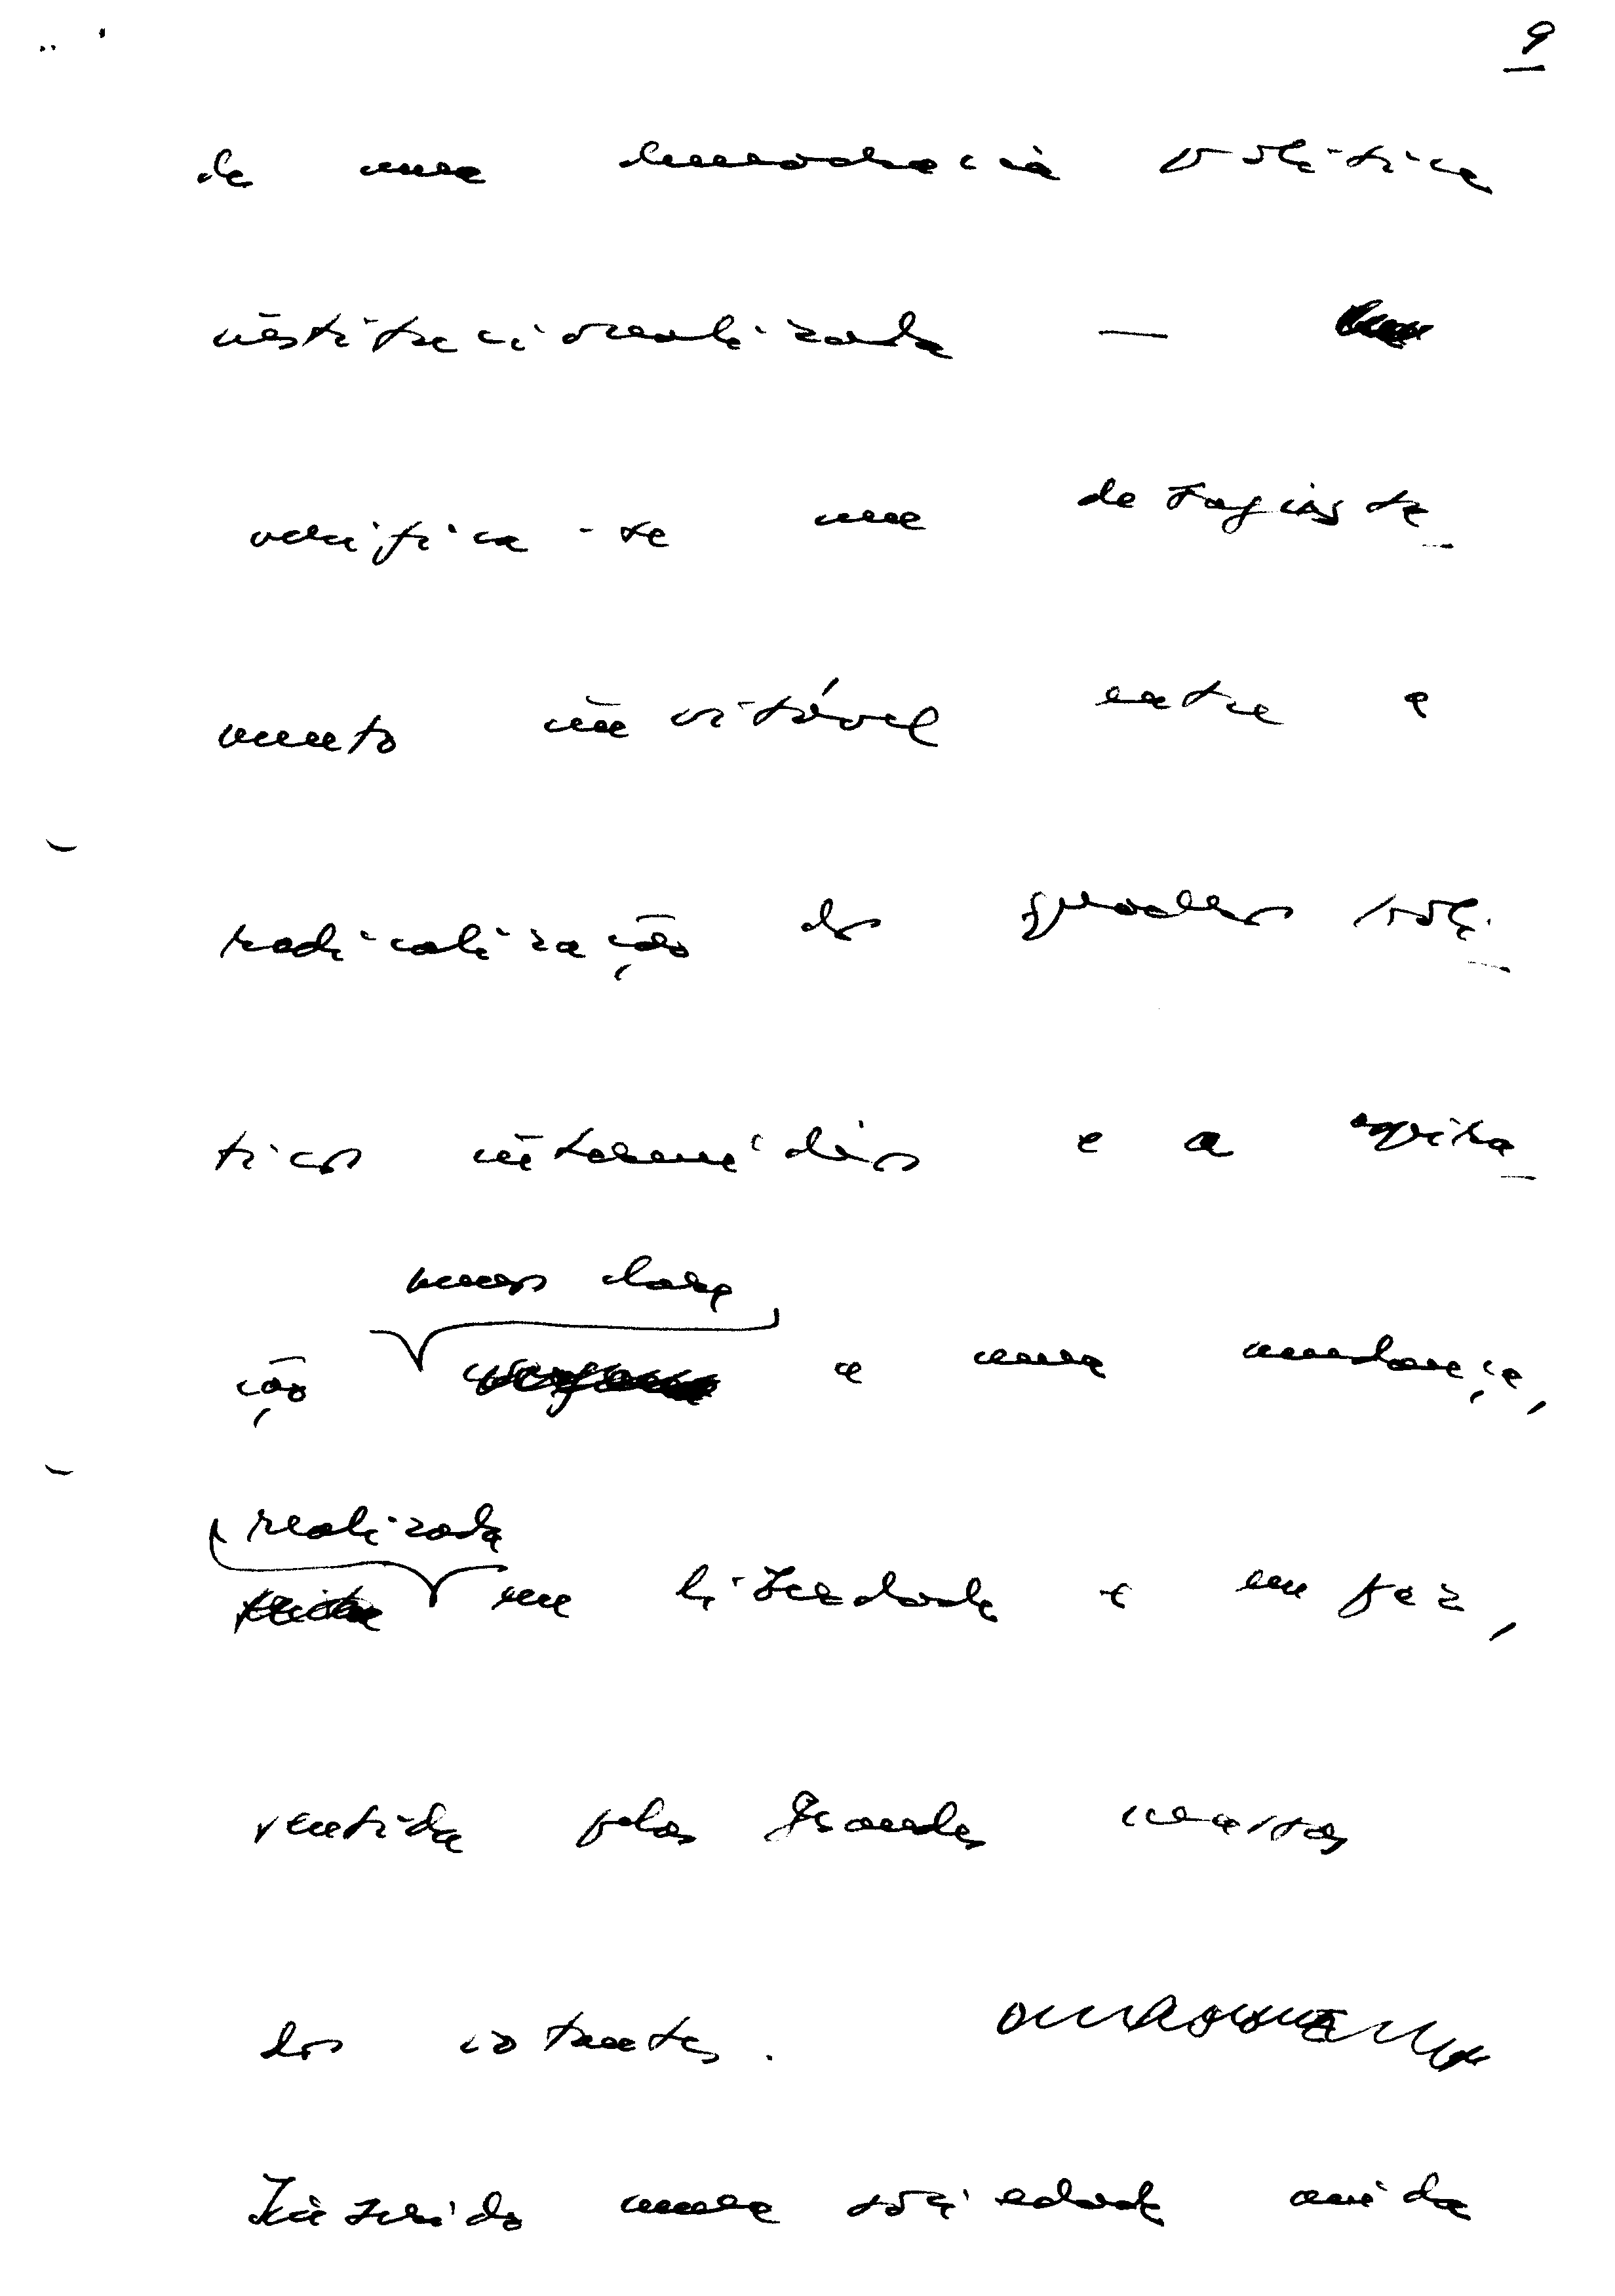 9
de uma democracia política
institucionalizada —
verifica-se um defasiosta
mento inevitável entre a
radicalização dos quadros polí
ticos intermédios e a aspira
numa dada
ção a uma mudança,
realizada
em liberdade e em paz,
sentida pelas grandes massas
dos votantes.
Inserido numa sociedade ainda